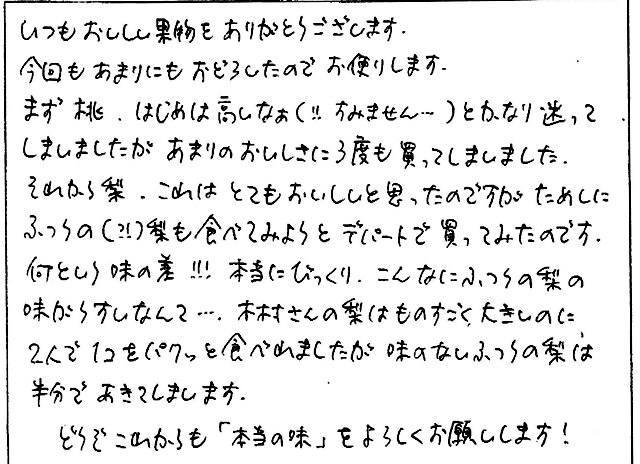 いつもおいしい果物をありがとうございます.
今回もあまりにもおどろいたのでお便りします.
まず桃、はじめは高いなぁ(!! すみません…)とかなり迷って
しまいましたがあまりのおいしさに3度も買ってしまいました.
それから梨、これはとてもおいしいと思ったのですがためしに
ふつうの(?!)梨も食べてみようとデパートで買ってみたのです.
何という味の差!!! 本当にびっくり. こんなにふつうの梨の
味がうすいなんて…. 木村さんの梨はものすごく大きいのに
2人で1コをパクッと食べれましたが味のないふつうの梨は
半分であきてしまいます.
どうぞこれからも「本当の味」をよろしくお願いします!